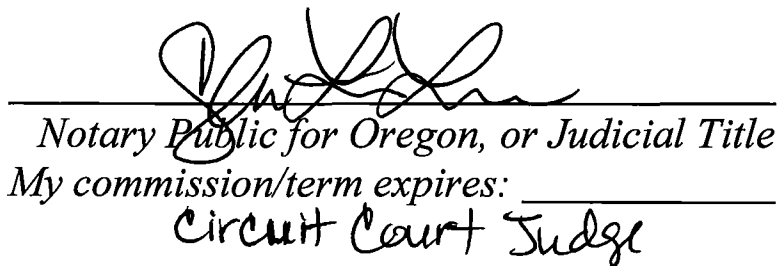 Notary Public for Oregon, or Judicial Title
My commission/term expires: ____________
Circuit Court Judge